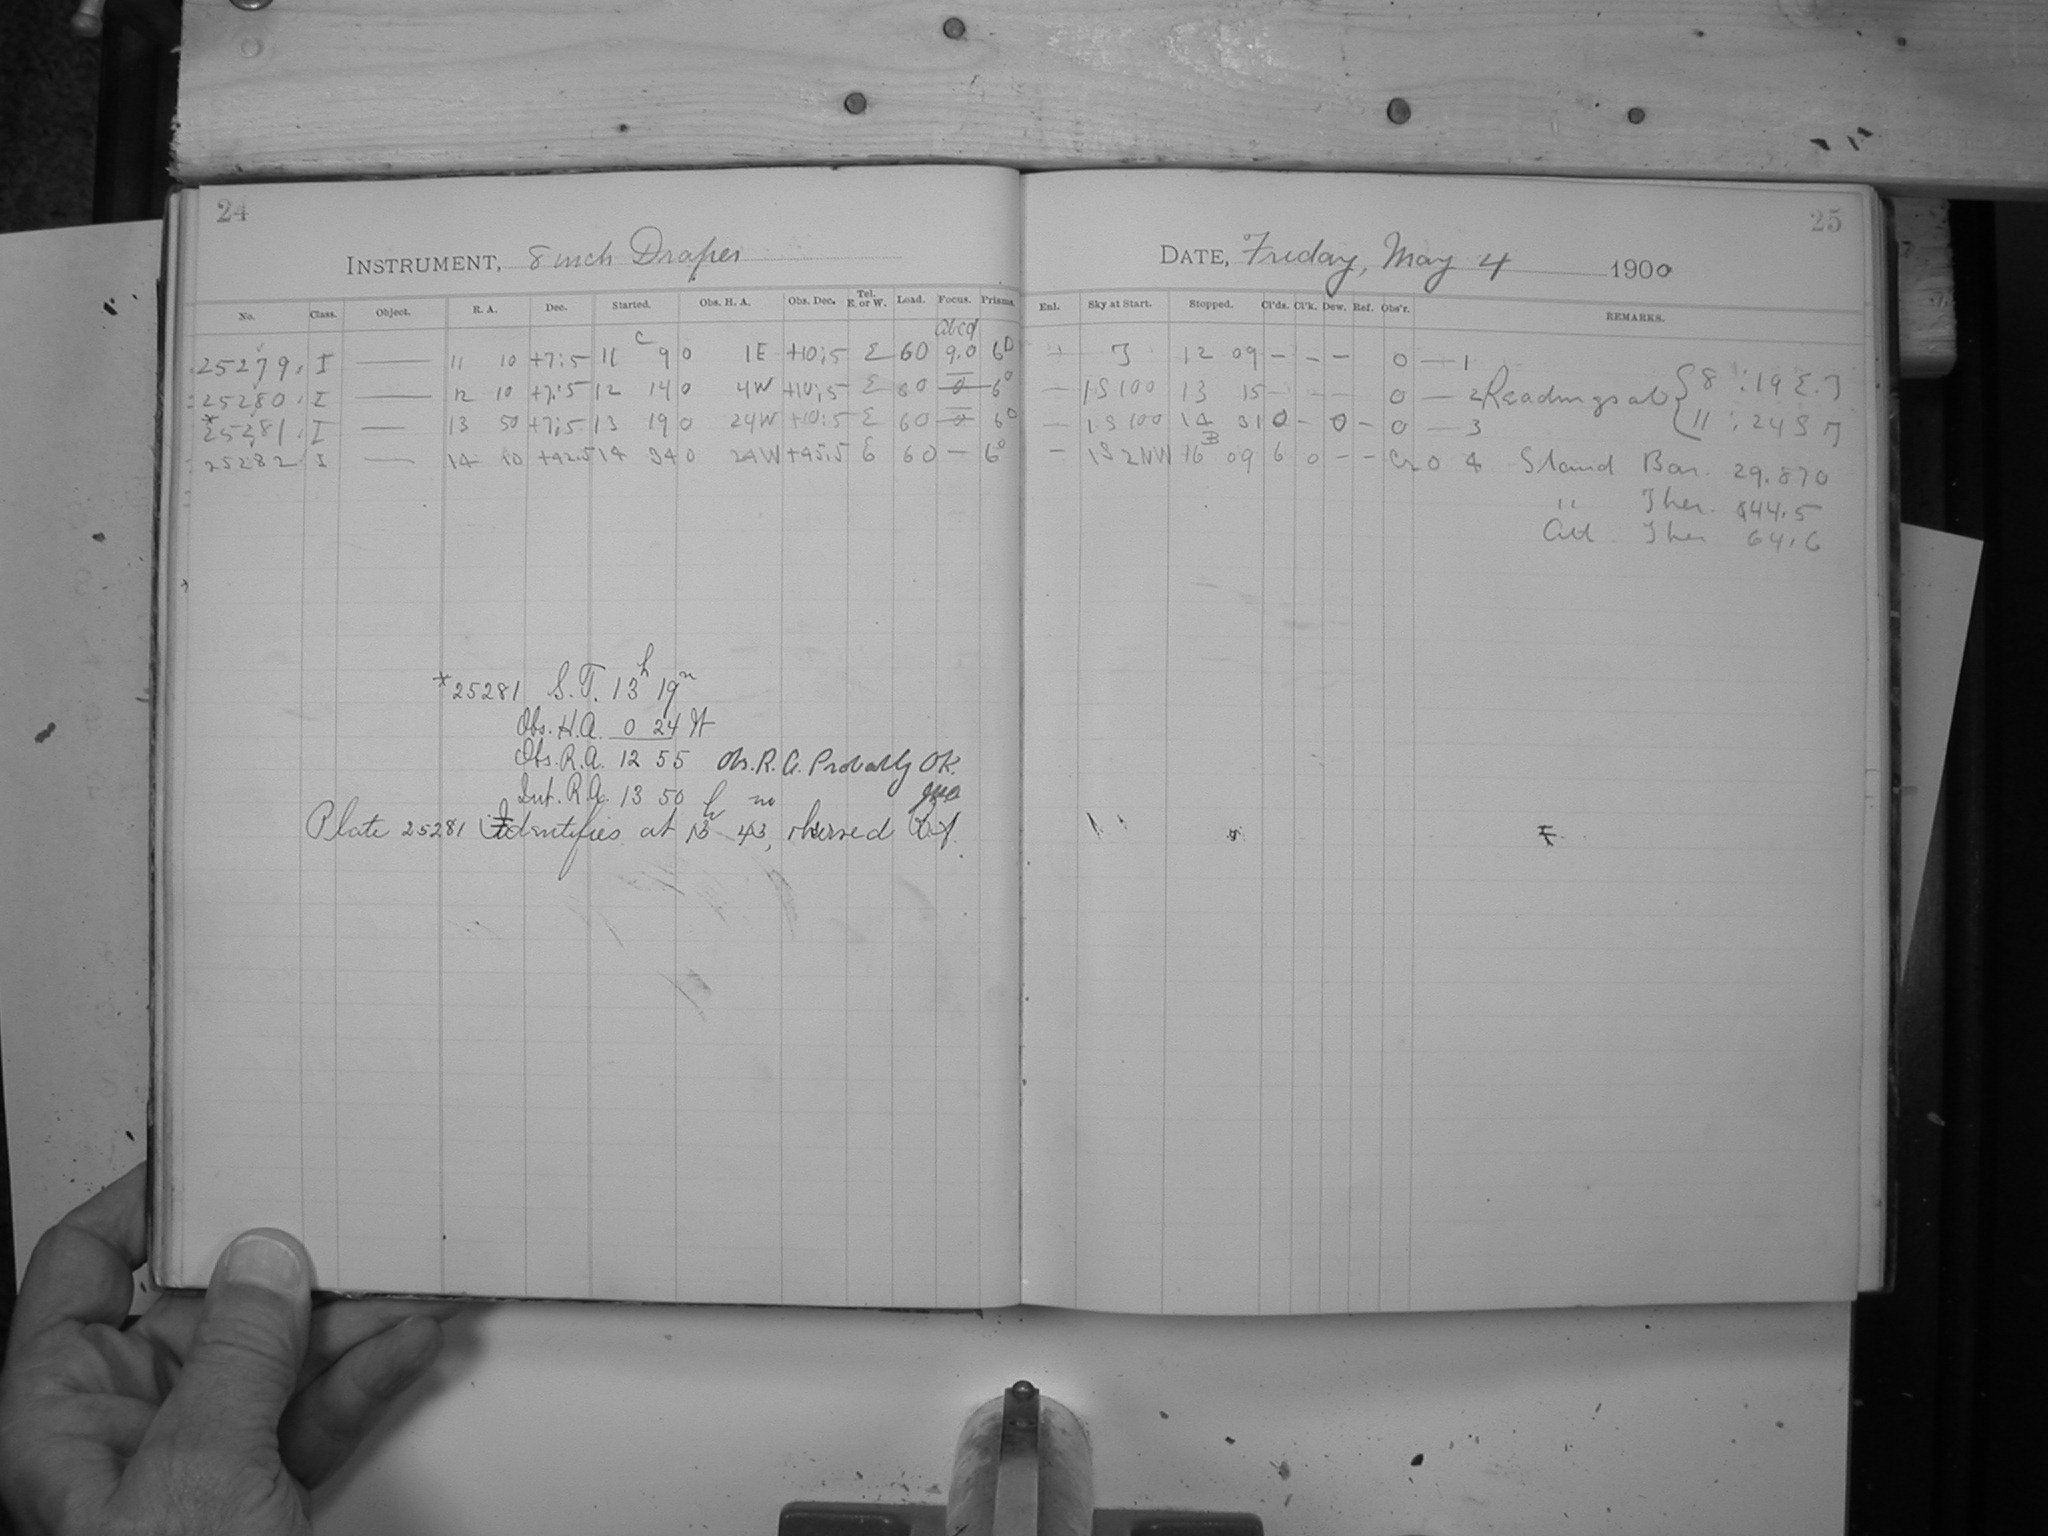 24
INSTRUMENT, 8 inch Draper
No. Class. Object. R. A. Dec. Started. Obs. H. A. Obs. Dec. Tel. E. or W. Load. Focus. Prisms.
25279 I — 11 10 +7;5 11 9 0 1E +10;5 E 60 9.0 6
25280 I — 12 10 +7;5 12 14 0 4W +10;5 E 60 6
*25281 I — 13 50 +7;5 13 19 0 24W +10;5 E 60 6
25282 I — 14 10 +42.5 14 34 0 24W +45;5 E 60 — 6
*25281 S. T. 13h 19m
Obs. H. A. 0 24 W
Obs. R. A. 12 55 Obs. R. A. Probably OK.
Int. R. A. 13 50
Plate 25281 identifies at 13h 43m, observed
25
DATE, Friday, May 4 1900
Enl. Sky at Start. Stopped. Cl'ds. Cl'k. Dew. Ref. Obs'r. REMARKS.
12 09 — — — 0 — 1
— 1S100 13 15 — — — 0 — 2 Readings at { 8 : 19 E. T
— 1S100 14 31 0 — 0 — 0 — 3 { 11 : 24 S T
— 1S2NW 16 09 6 0 — — 0 4 Stand Bar. 29.870
" Ther. 44.5
Att. Ther 64.6